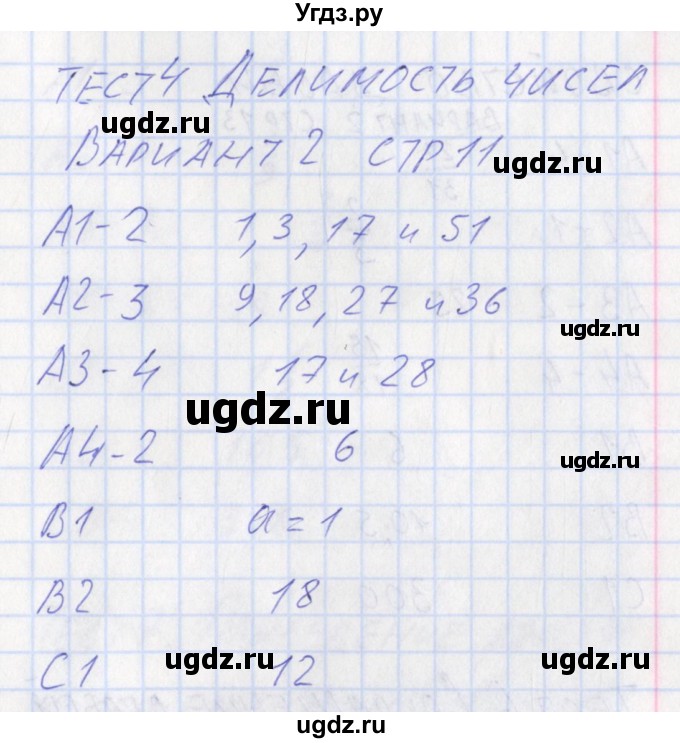 Угдз.ру
ТЕСТ 4 ДЕЛИМОСТЬ ЧИСЕЛ
ugdz.ru
ВАРИАНТ 2 СТР 11
ugdz.ru
А1-2 1, 3, 17 и 51
А2-3 9, 18, 27 и 36
ugdz.ru
А3-4 17 и 28
ugdz.ru
А4-2 6
ugdz.ru
В1 a = 1
В2 18
ugdz.ru
ugdz.ru
С1 12
ugdz.ru